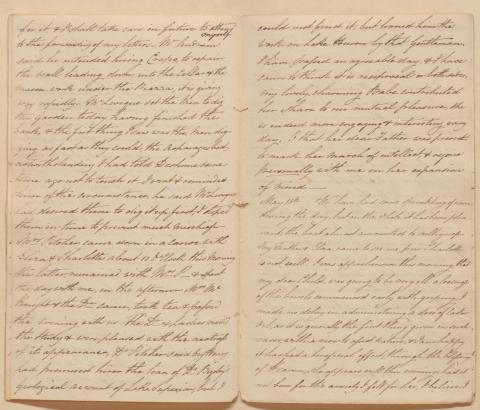 for it & I shall take care in future to attend myself
to the forwarding of my letters. Mr
said he intended hiring to repair
the wall leading down into the Cellar & the
mason work under the Piazza, it is giving
way rapidly. Mr set the men to dig
the Garden today having finished the
bank, & the first thing I saw was the men dig-
ging as fast as they could, the Asparagus bed,
notwithstanding I had told some
time ago not to touch it. I went & reminded
him of the circumstance, he said
had desired them to dig it up first. I stopt
them in time to prevent much mischief.
Mrs Pitcher came down in a canoe with
& Charlotte about 10 o'clock this morning
the latter remained with Mrs P. & spent
the day with me, in the afternoon Mrs Mc
Knight & the Dr came, took tea & passed
the evening with us. The Dr & Ladies visited
the study & was pleased with the neatness
of its appearance, Dr Pitcher said by Henry
had promised him the loan of Dr Bigsby's
geological account of Lake Superior, but I
could not find it, but loaned him the
work on Lake Huron by that Gentleman.
I have passed an agreeable day, & I have
cause to think it is reciprocal on both sides,
my lovely charming Babe contributed
her share to our mutual pleasures, she
is indeed more engaging & interesting every
day, O that her dear Father was present
to mark her march of intellect & rejoice
personally with me in her expansion
of mind.
May 15th We have had some sprinkling of rain
during the day, but on the whole it has been plea-
sant, the heat almost amounted to sultry.
came to see me & Charlotte
is not well. I was apprehensive this morning that
my dear Child was going to be very ill, a looseness
of the bowels commenced early with griping. I
made no delay in administering a dose of castor
oil, as it is generally the first thing given in such
cases with a mouth apiece, & I am happy
it has had a beneficial effect through the blessing
of the same, she appears well this evening,
for the anxiety I felt for her. I believe I